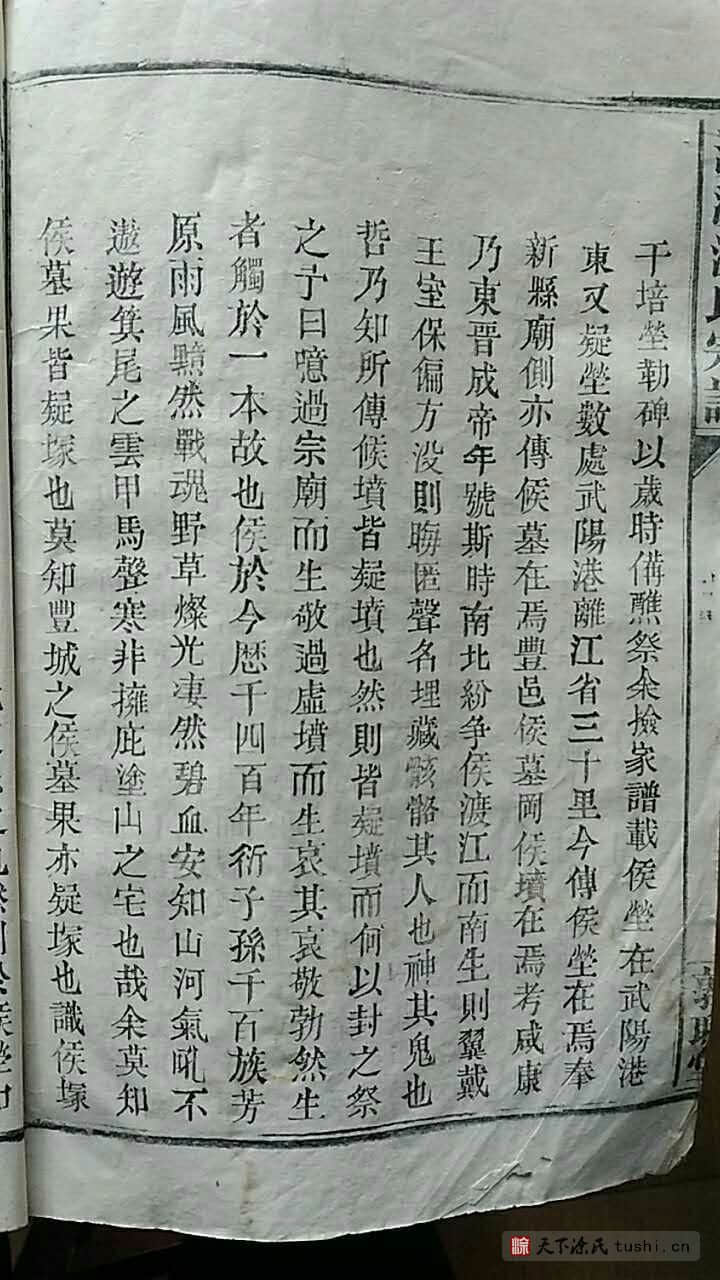 干培塋勒碑以歲時備醮祭余撿家譜載侯塋在武陽港
東又疑塋數處武陽港離江省三十里今傳侯塋在焉奉
新縣廟側亦傳侯墓在焉豐邑侯墓岡侯墳在焉考咸康
乃東晋成帝年號斯時南北紛争侯渡江而南生則翼戴
王室保偏方没則晦匿聲名埋藏骸骼其人也神其鬼也
哲乃知所傳候墳皆疑墳也然則皆疑墳而何以封之祭
之予曰噫過宗廟而生敬過虛墳而生哀其哀敬勃然生
者觸於一本故也侯於今歷千四百年衍子孫千百族芳
原雨風黯然戰魂野草燦光凄然碧血安知山河氣吼不
遨遊箕尾之雲甲馬聲寒非擁庇塗山之宅也哉余莫知
侯墓果皆疑塚也莫知豐城之侯墓果亦疑塚也識侯塚
天下涂氏 tushi.cn